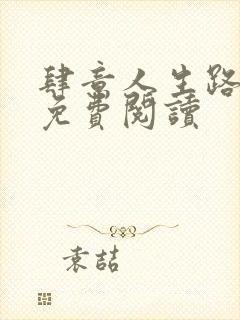 肆意人生路
免費閱讀
袁喆